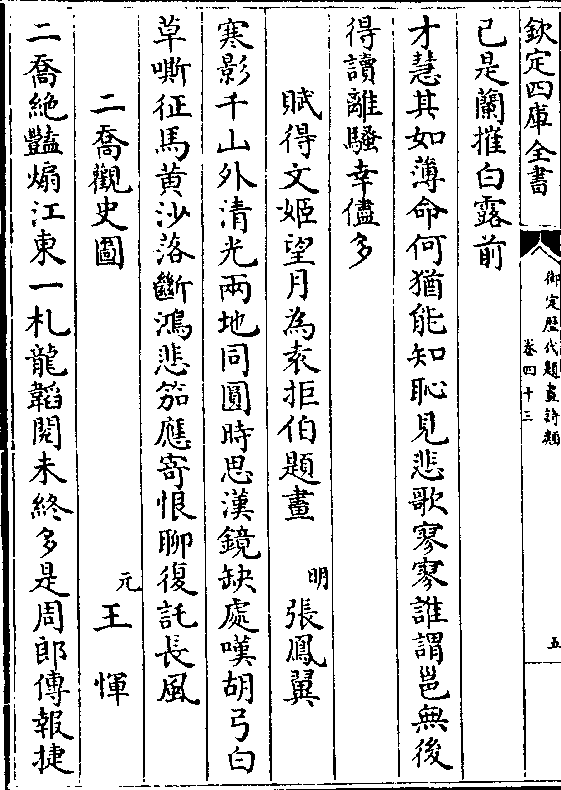 欽定四庫全書
御定歴代題畫詩類
卷四十三
五
已是蘭摧白露前
才慧其如薄命何猶能知恥見悲歌寥寥誰謂邕無後
得讀離騷幸儘多
賦得文姬望月為袁拒伯題畫 明 張鳳翼
寒影千山外清光兩地同圓時思漢鏡缺處嘆胡弓白
草嘶征馬黄沙落斷鴻悲笳應寄恨聊復託長風
二喬觀史圖 元 王惲
二喬絶豔煽江東一札龍韜閱未終多是周郎傳報捷